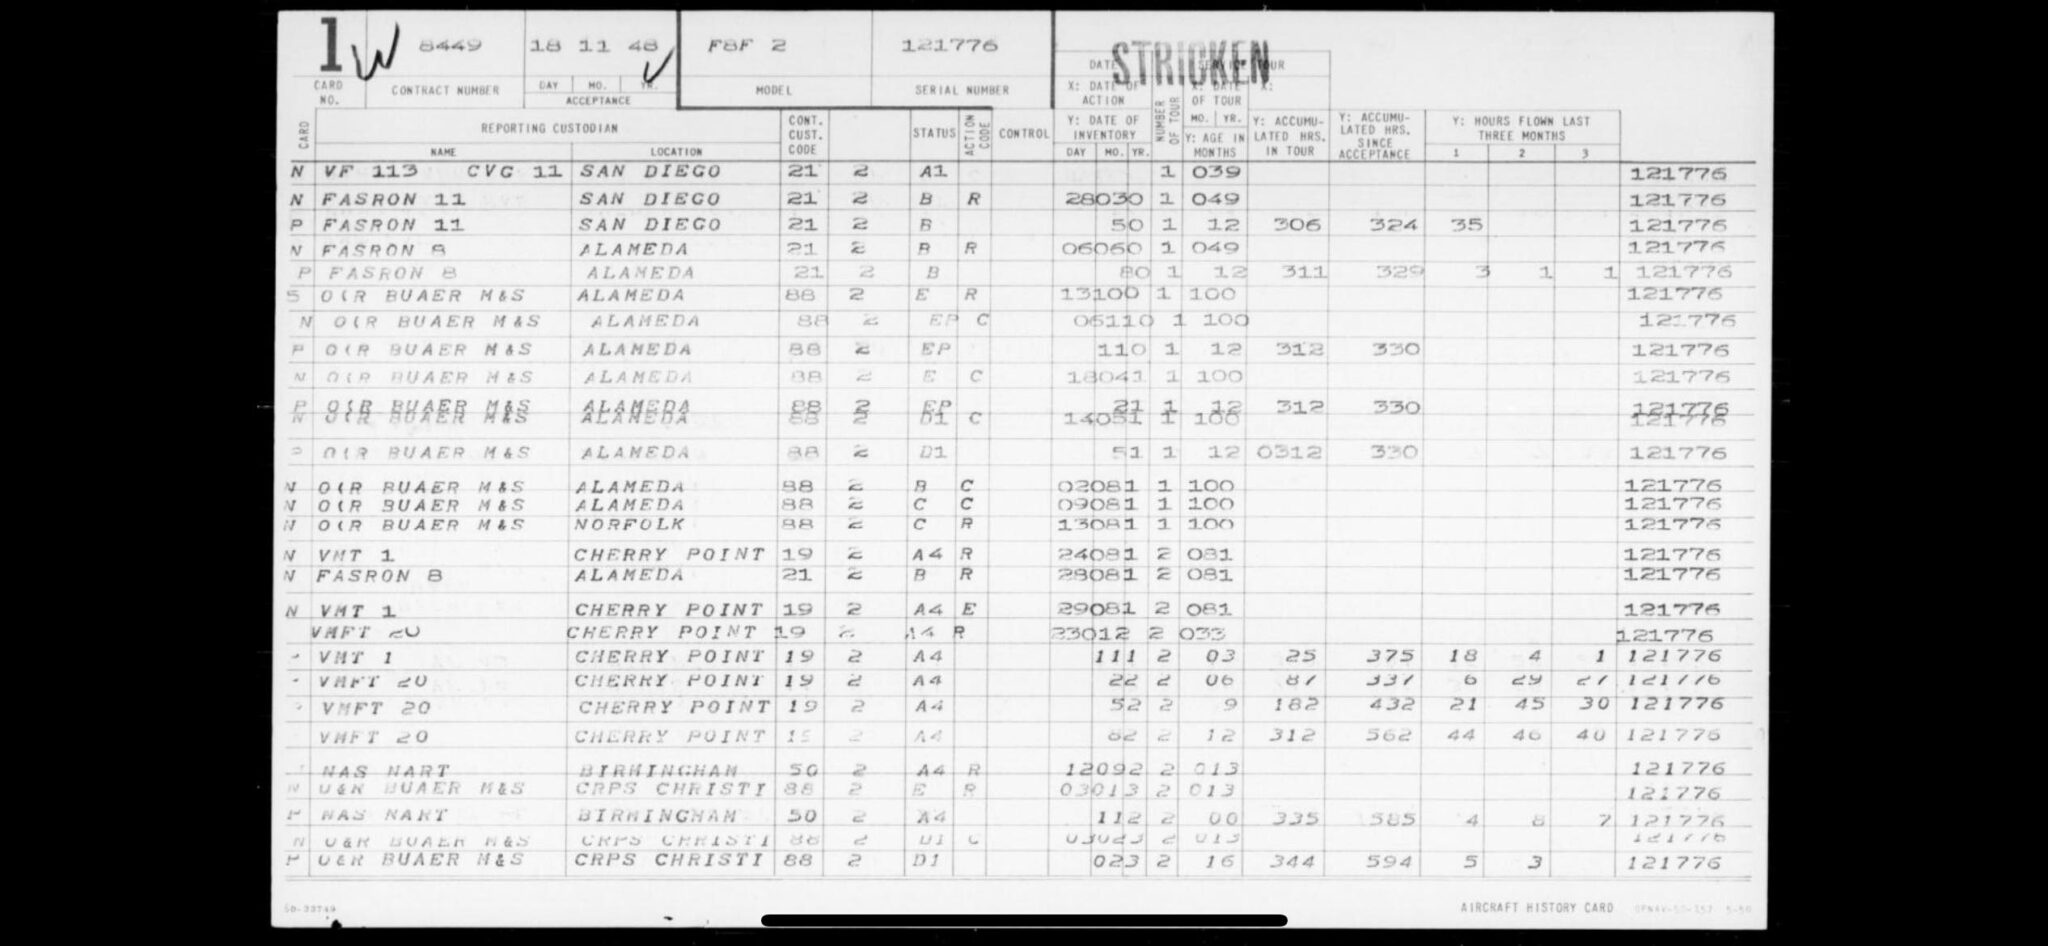 1 W 8449 18 11 48 F8F 2 121776 STRICKEN
CARD NO. CONTRACT NUMBER DAY MO. YR. ACCEPTANCE MODEL SERIAL NUMBER
DATE SERVICE TOUR
X: DATE OF ACTION X: DATE OF TOUR X:
CARD REPORTING CUSTODIAN CONT. CUST. CODE STATUS ACTION CODE CONTROL Y: DATE OF INVENTORY NUMBER OF TOUR MO. YR. Y: AGE IN MONTHS Y: ACCUMULATED HRS. IN TOUR Y: ACCUMULATED HRS. SINCE ACCEPTANCE Y: HOURS FLOWN LAST THREE MONTHS
NAME LOCATION DAY MO. YR. 1 2 3
N VF 113 CVG 11 SAN DIEGO 21 2 A1 1 039 121776
N FASRON 11 SAN DIEGO 21 2 B R 28030 1 049 121776
P FASRON 11 SAN DIEGO 21 2 B 50 1 12 306 324 35 121776
N FASRON 8 ALAMEDA 21 2 B R 06060 1 049 121776
P FASRON 8 ALAMEDA 21 2 B 80 1 12 311 329 3 1 1 121776
S O(R BUAER M&S ALAMEDA 88 2 E R 13100 1 100 121776
N O(R BUAER M&S ALAMEDA 88 2 EP C 06110 1 100 121776
P O(R BUAER M&S ALAMEDA 88 2 EP 110 1 12 312 330 121776
N O(R BUAER M&S ALAMEDA 88 2 E C 18041 1 100 121776
P O(R BUAER M&S ALAMEDA 88 2 EP 21 1 12 312 330 121776
N O(R BUAER M&S ALAMEDA 88 2 D1 C 14051 1 100 121776
P O(R BUAER M&S ALAMEDA 88 2 D1 51 1 12 0312 330 121776
N O(R BUAER M&S ALAMEDA 88 2 B C 02081 1 100 121776
N O(R BUAER M&S ALAMEDA 88 2 C C 09081 1 100 121776
N O(R BUAER M&S NORFOLK 88 2 C R 13081 1 100 121776
N VMT 1 CHERRY POINT 19 2 A4 R 24081 2 081 121776
N FASRON 8 ALAMEDA 21 2 B R 28081 2 081 121776
N VMT 1 CHERRY POINT 19 2 A4 E 29081 2 081 121776
VMFT 20 CHERRY POINT 19 2 A4 R 23012 2 033 121776
VMT 1 CHERRY POINT 19 2 A4 111 2 03 25 375 18 4 1 121776
VMFT 20 CHERRY POINT 19 2 A4 22 2 06 87 337 6 29 27 121776
VMFT 20 CHERRY POINT 19 2 A4 52 2 9 182 432 21 45 30 121776
VMFT 20 CHERRY POINT 19 2 A4 82 2 12 312 562 44 46 40 121776
NAS NART BIRMINGHAM 50 2 A4 R 12092 2 013 121776
N O&R BUAER M&S CRPS CHRISTI 88 2 E R 03013 2 013 121776
P NAS NART BIRMINGHAM 50 2 A4 112 2 00 335 585 4 8 7 121776
N O&R BUAER M&S CRPS CHRISTI 88 2 D1 C 03023 2 013 121776
P O&R BUAER M&S CRPS CHRISTI 88 2 D1 023 2 16 344 594 5 3 121776
SD-33749 AIRCRAFT HISTORY CARD 5-50